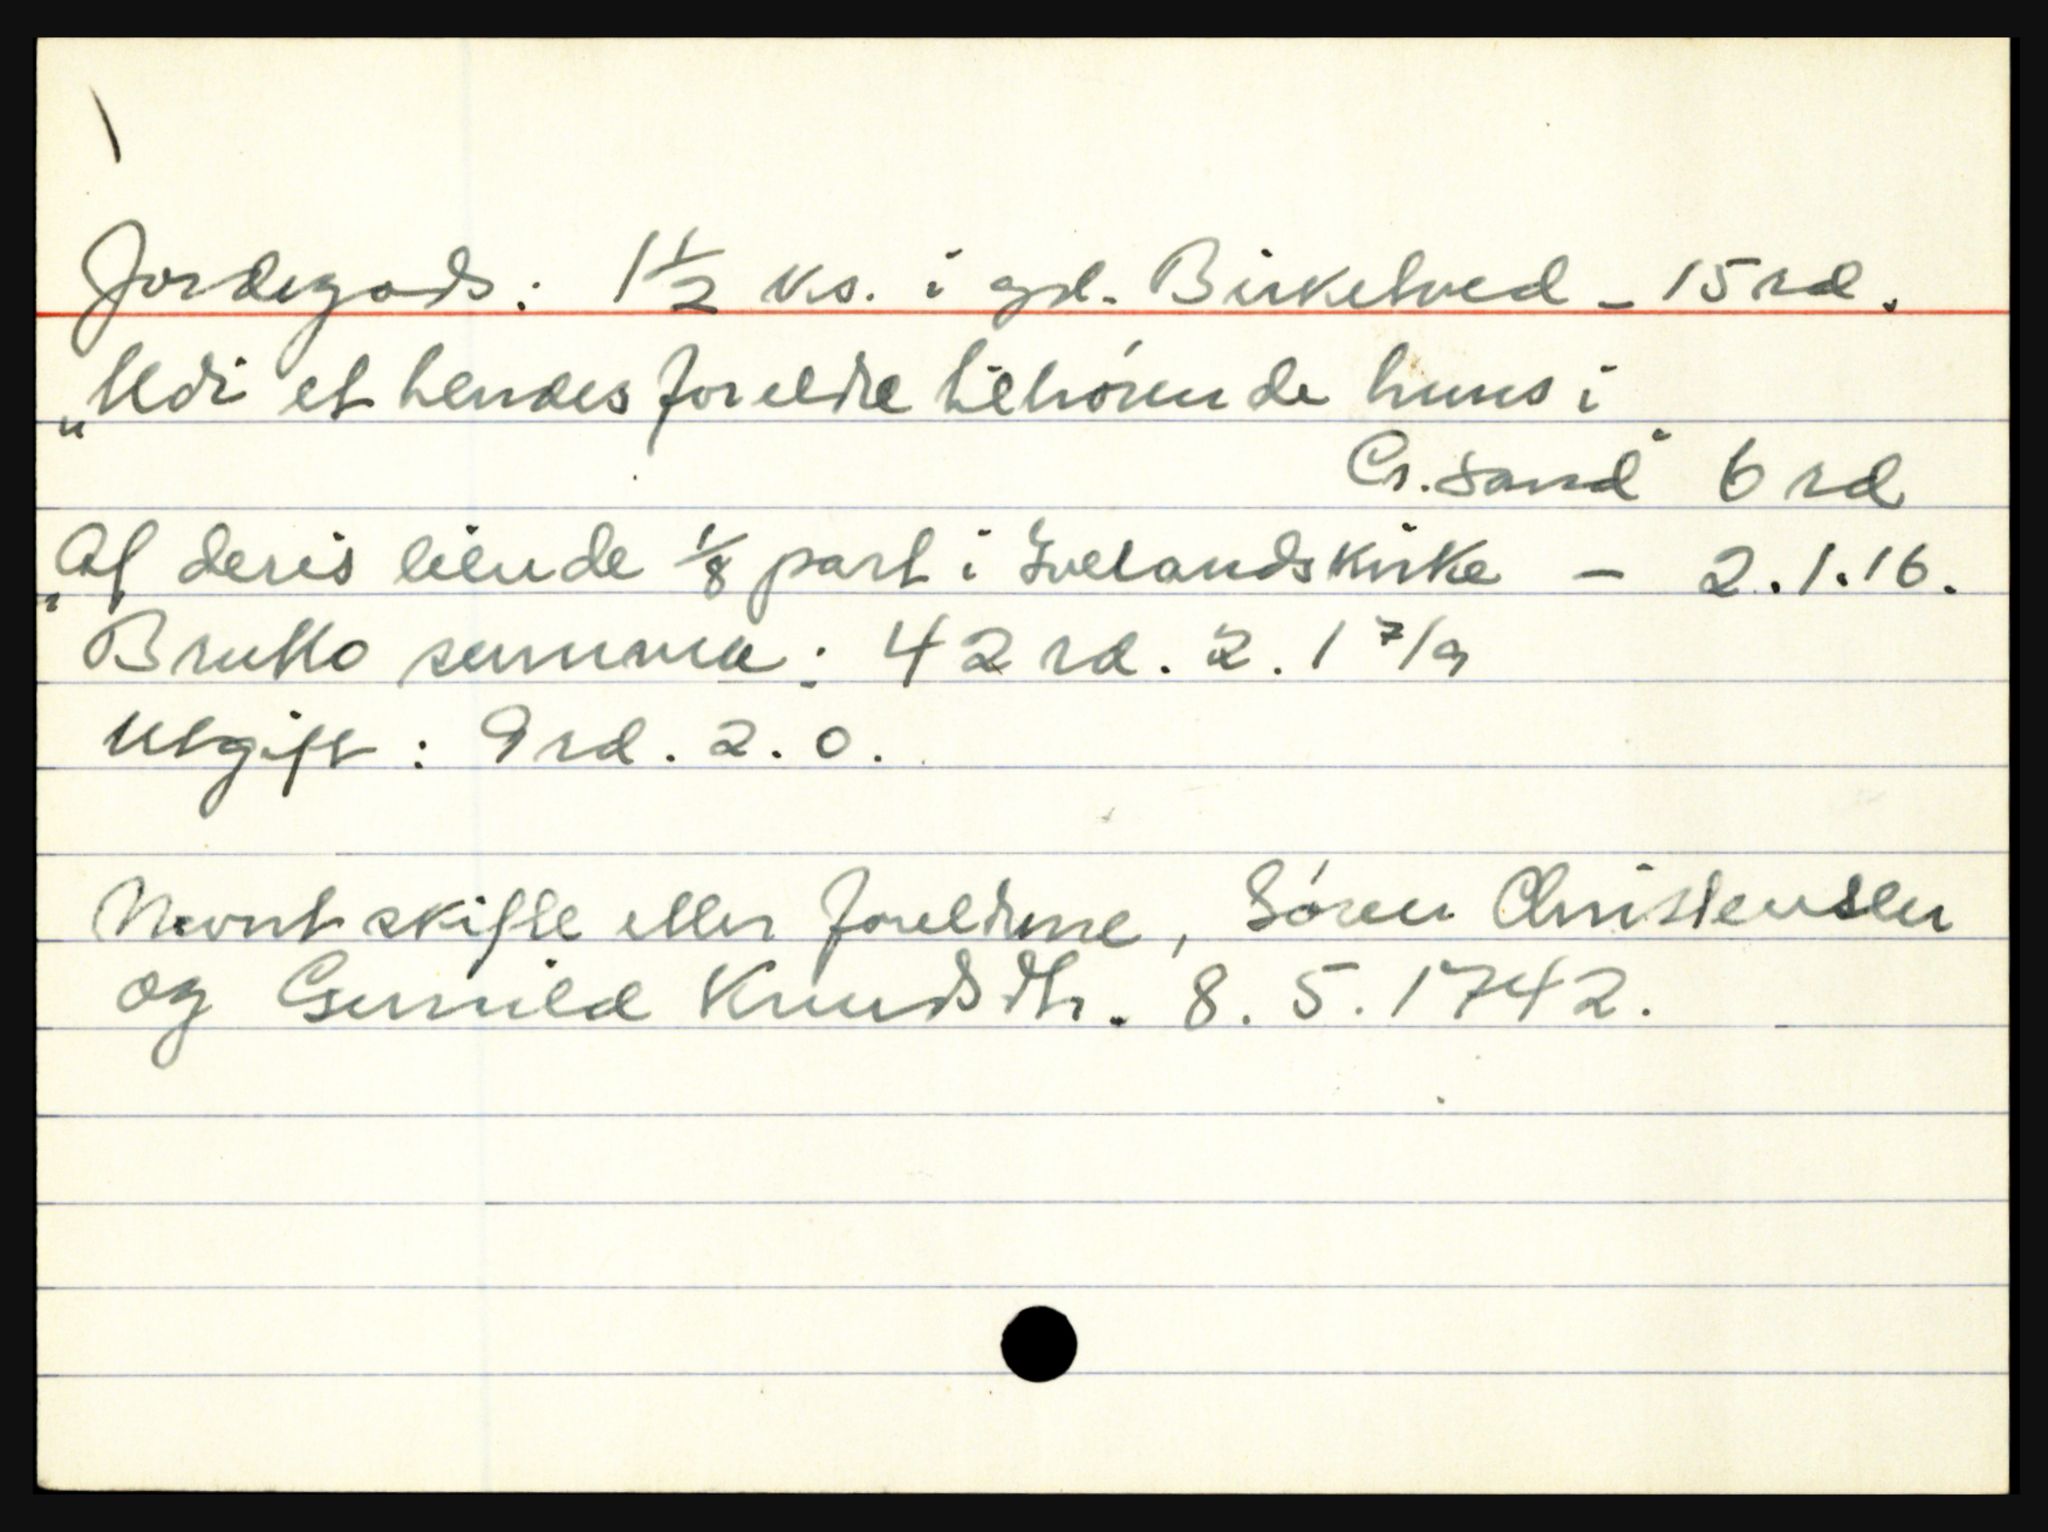 Jordegods: 1 1/2 ks. i gd. Birketved - 15 rd.
"Udi et hendes foreldre tilhørende huus i
Cr.sand" 6 rd
"Af deris eiende 1/8 part i Ivelandskirke - 2.1.16.
Brutto summa: 42 rd. 2. 1 7/9
Utgift: 9 rd. 2. 0.
Nevnt skifte etter foreldrene, Sören Christensen
og Gunnild Knudsdtr. 8. 5. 1742.